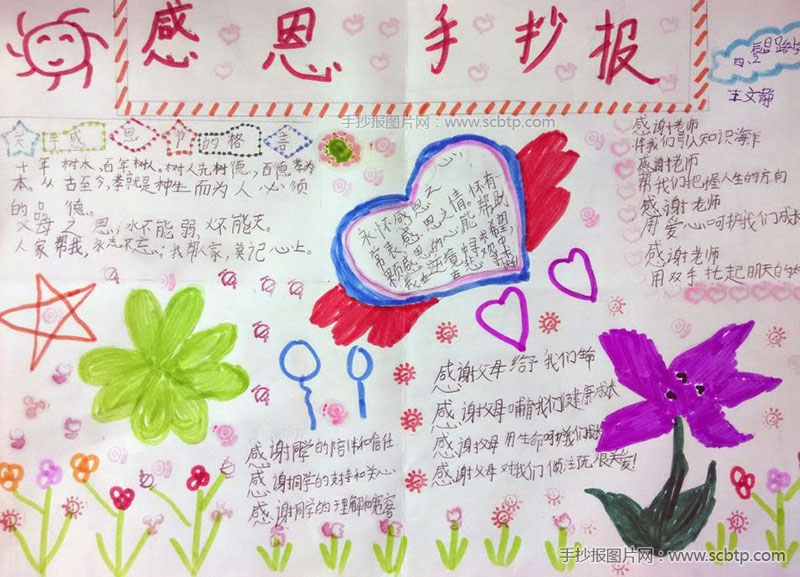 感恩手抄报
四、2
王文静
手抄报图片网：www.scbtp.com
关于感恩节的格言
十年树木，百年树人，树人先树德，百德孝为
本。从古至今，孝就是种生而为人必须
的品德。
父母之恩，水不能溺，火不能灭。
人家帮我，永志不忘；我帮人家，莫记心上。
永怀感恩之心，
常表感恩之情。怀有一
颗感恩的心，能帮助
你在逆境中寻求希望
感谢老师
伴我们引入知识海洋
感谢老师
帮我们把握人生的方向
感谢老师
用爱心呵护我们成长
感谢老师
用双手托起明天的
感谢父母给予我们生命
感谢父母哺育我们健康成长
感谢父母用生命呵护我们成长
感谢父母对我们倾注无限关爱！
感谢同学的陪伴和信任
感谢同学的支持和关心
感谢同学的理解和宽容
手抄报图片网：www.scbtp.com